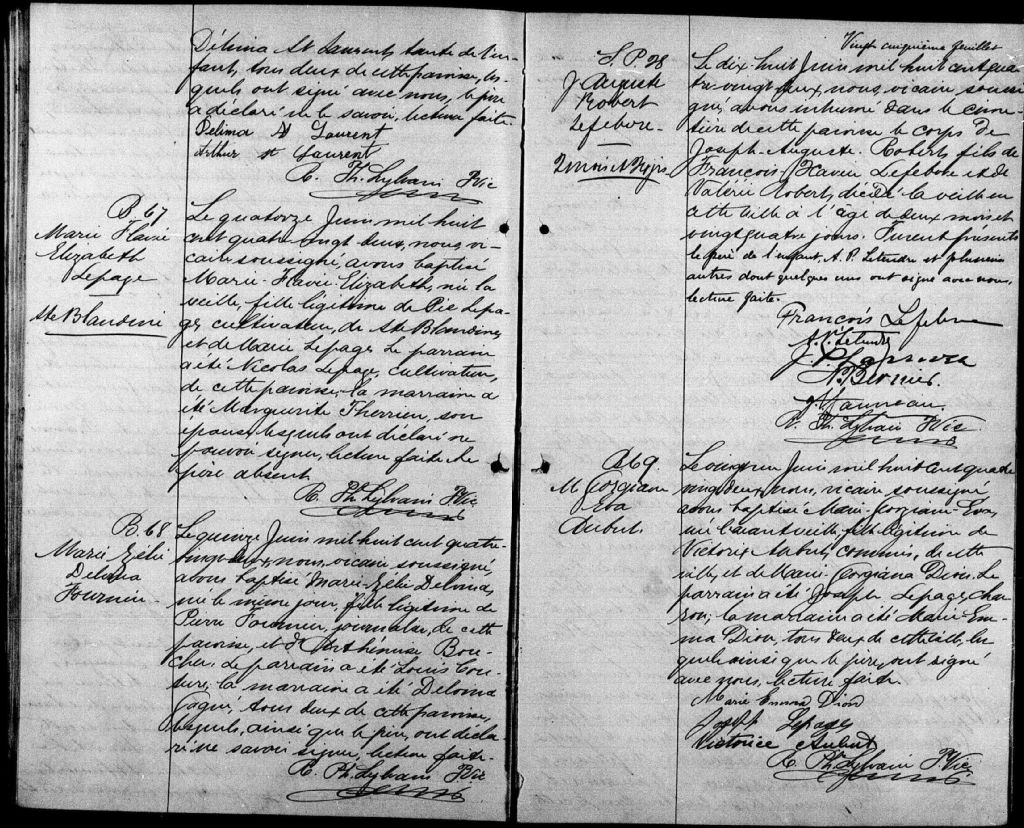 Délima St Laurent, tante de l'en-
fant, tous deux de cette paroisse, les-
quels ont signé avec nous, le père
a déclaré ne le savoir, lecture faite.
Delima St Laurent
Arthur st Laurent
R. Ph. Sylvain Ptre Vic
B. 67
Marie Flavie
Elizabeth
Lepage
Ste Blandine
Le quatorze Juin mil huit
cent quatre vingt deux, nous, vi-
caire soussigné, avons baptisé
Marie-Flavie-Elizabeth, née la
veille, fille légitime de Pie Lepa-
ge, cultivateur, de Ste Blandine,
et de Marie Lepage. Le parrain
a été Nicolas Lepage, cultivateur,
de cette paroisse, la marraine a
été Marguerite Therrien, son
épouse, lesquels ont déclaré ne
pouvoir signer, lecture faite. Le
père absent.
R. Ph. Sylvain Ptre Vic
B. 68
Marie Zélie
Delima
Fournier
Le quinze Juin mil huit cent quatre-
vingt deux, nous, vicaire soussigné,
avons baptisé Marie-Zélie-Delima,
née le même jour, fille légitime de
Pierre Fournier, journalier, de cette
paroisse, et d'Arthémise Bou-
cher. Le parrain a été Louis Cou-
ture, la marraine a été Delima
Gagné, tous deux de cette paroisse,
lesquels, ainsi que le père, ont décla-
ré ne savoir signer, lecture faite.
R. Ph. Sylvain Ptre Vic
Vingt cinquième feuillet
S. P. 28
J Auguste
Robert
Lefebvre
2 mois et 24 jrs
Le dix-huit Juin mil huit cent qua-
tre vingt deux, nous, vicaire soussi-
gné, avons inhumé dans le cime-
tière de cette paroisse le corps de
Joseph-Auguste-Robert, fils de
François-Xavier Lefebvre et de
Valérie Robert, décédé la veille en
cette ville à l'âge de deux mois et
vingt quatre jours. Furent présents
le père de l'enfant, A. P. Letendre et plusieurs
autres dont quelques uns ont signé avec nous,
lecture faite.
François Lefebvre
A. P. Letendre
R. Ph. Sylvain Ptre Vic
B 69.
M. Gorgiana
Eva
Aubut.
Le Juin mil huit cent quatre
vingt deux, nous, vicaire soussigné
avons baptisé Marie-Gorgiana-Eva,
née l'avant veille, fille légitime de
Victorice Aubut, commis, de cette
ville, et de Marie-Gorgiana Dion. Le
parrain a été Joseph Lepage, cha-
; la marraine a été Marie-Em-
ma Dion, tous deux de cette ville, les-
quels ainsi que le père, ont signé
avec nous, lecture faite.
Marie Emma Dion
Joseph Lepage
Victorice Aubut
R. Ph. Sylvain Ptre Vic